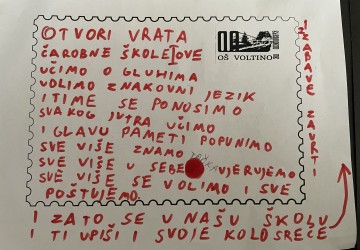 OTVORI VRATA
ČAROBNE ŠKOLE OVE
UČIMO O GLUHIMA
VOLIMO ZNAKOVNI JEZIK
I TIME SE PONOSIMO
SVAKOG JUTRA UČIMO
I GLAVU PAMETI POPUNIMO
SVE VIŠE ZNAMO
SVE VIŠE U SEBE VJERUJEMO
SVE VIŠE SE VOLIMO I SVE
POŠTUJEMO.
I ZATO, SE U NAŠU ŠKOLU
I TI UPIŠI I SVOJE KOLO SREĆE
I ZABAVE ZAVRTI
OŠ VOLTINO